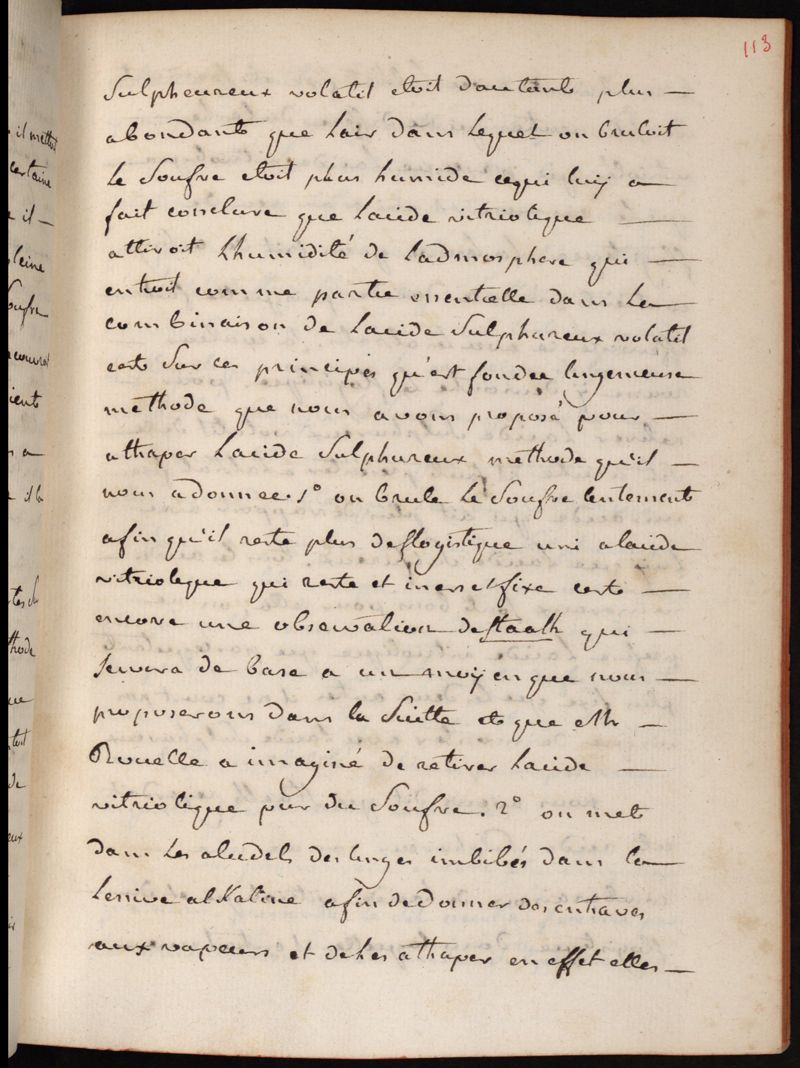 113
Sulpheureux volatil etoit dautant plus —
abondante que lair dans lequel on bruloit
le Soufre etoit plus humide cequi luij a
fait conclure que lacide vitriolique —
attiroit Lhumidité de Ladmosphere qui —
entroit comme partie essentielle dans la
combinaison de Lacide Sulphureux volatil
cests Sur ces principes qu'est fondee lingenieuse
methode que nous avons proposé pour —
athaper Lacide Sulphureux methode qu'il —
nous adonnee. 1° on brule Le Soufre lentement
afin qu'il reste plus deflogistique uni alacide
vitriolique qui reste et iners et fixe cests —
encore une observation de staalh qui —
Servira de base a un moijen que nous —
proposerons dans la Suitte et que Mr —
Rouelle a imaginé de retirer Lacide —
vitriolique pur du Soufre. 2° on met
dans les aludels des linges imbibés dans la
Lessive alkaline afin dedonner des entraves
aux vapeurs et de les athaper en effet elles —
il mettoit
certaine
il —
pleine
Soufre
a
il
thode
de